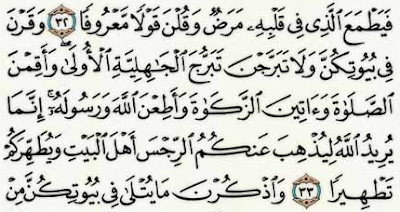 فَيَطْمَعَ ٱلَّذِى فِى قَلْبِهِۦ مَرَضٌ وَقُلْنَ قَوْلًا مَّعْرُوفًا ٣٢ وَقَرْنَ
فِى بُيُوتِكُنَّ وَلَا تَبَرَّجْنَ تَبَرُّجَ ٱلْجَـٰهِلِيَّةِ ٱلْأُولَىٰ وَأَقِمْنَ
ٱلصَّلَوٰةَ وَءَاتِينَ ٱلزَّكَوٰةَ وَأَطِعْنَ ٱللَّهَ وَرَسُولَهُۥٓ ۚ إِنَّمَا
يُرِيدُ ٱللَّهُ لِيُذْهِبَ عَنكُمُ ٱلرِّجْسَ أَهْلَ ٱلْبَيْتِ وَيُطَهِّرَكُمْ
تَطْهِيرًا ٣٣ وَٱذْكُرْنَ مَا يُتْلَىٰ فِى بُيُوتِكُنَّ مِنْ